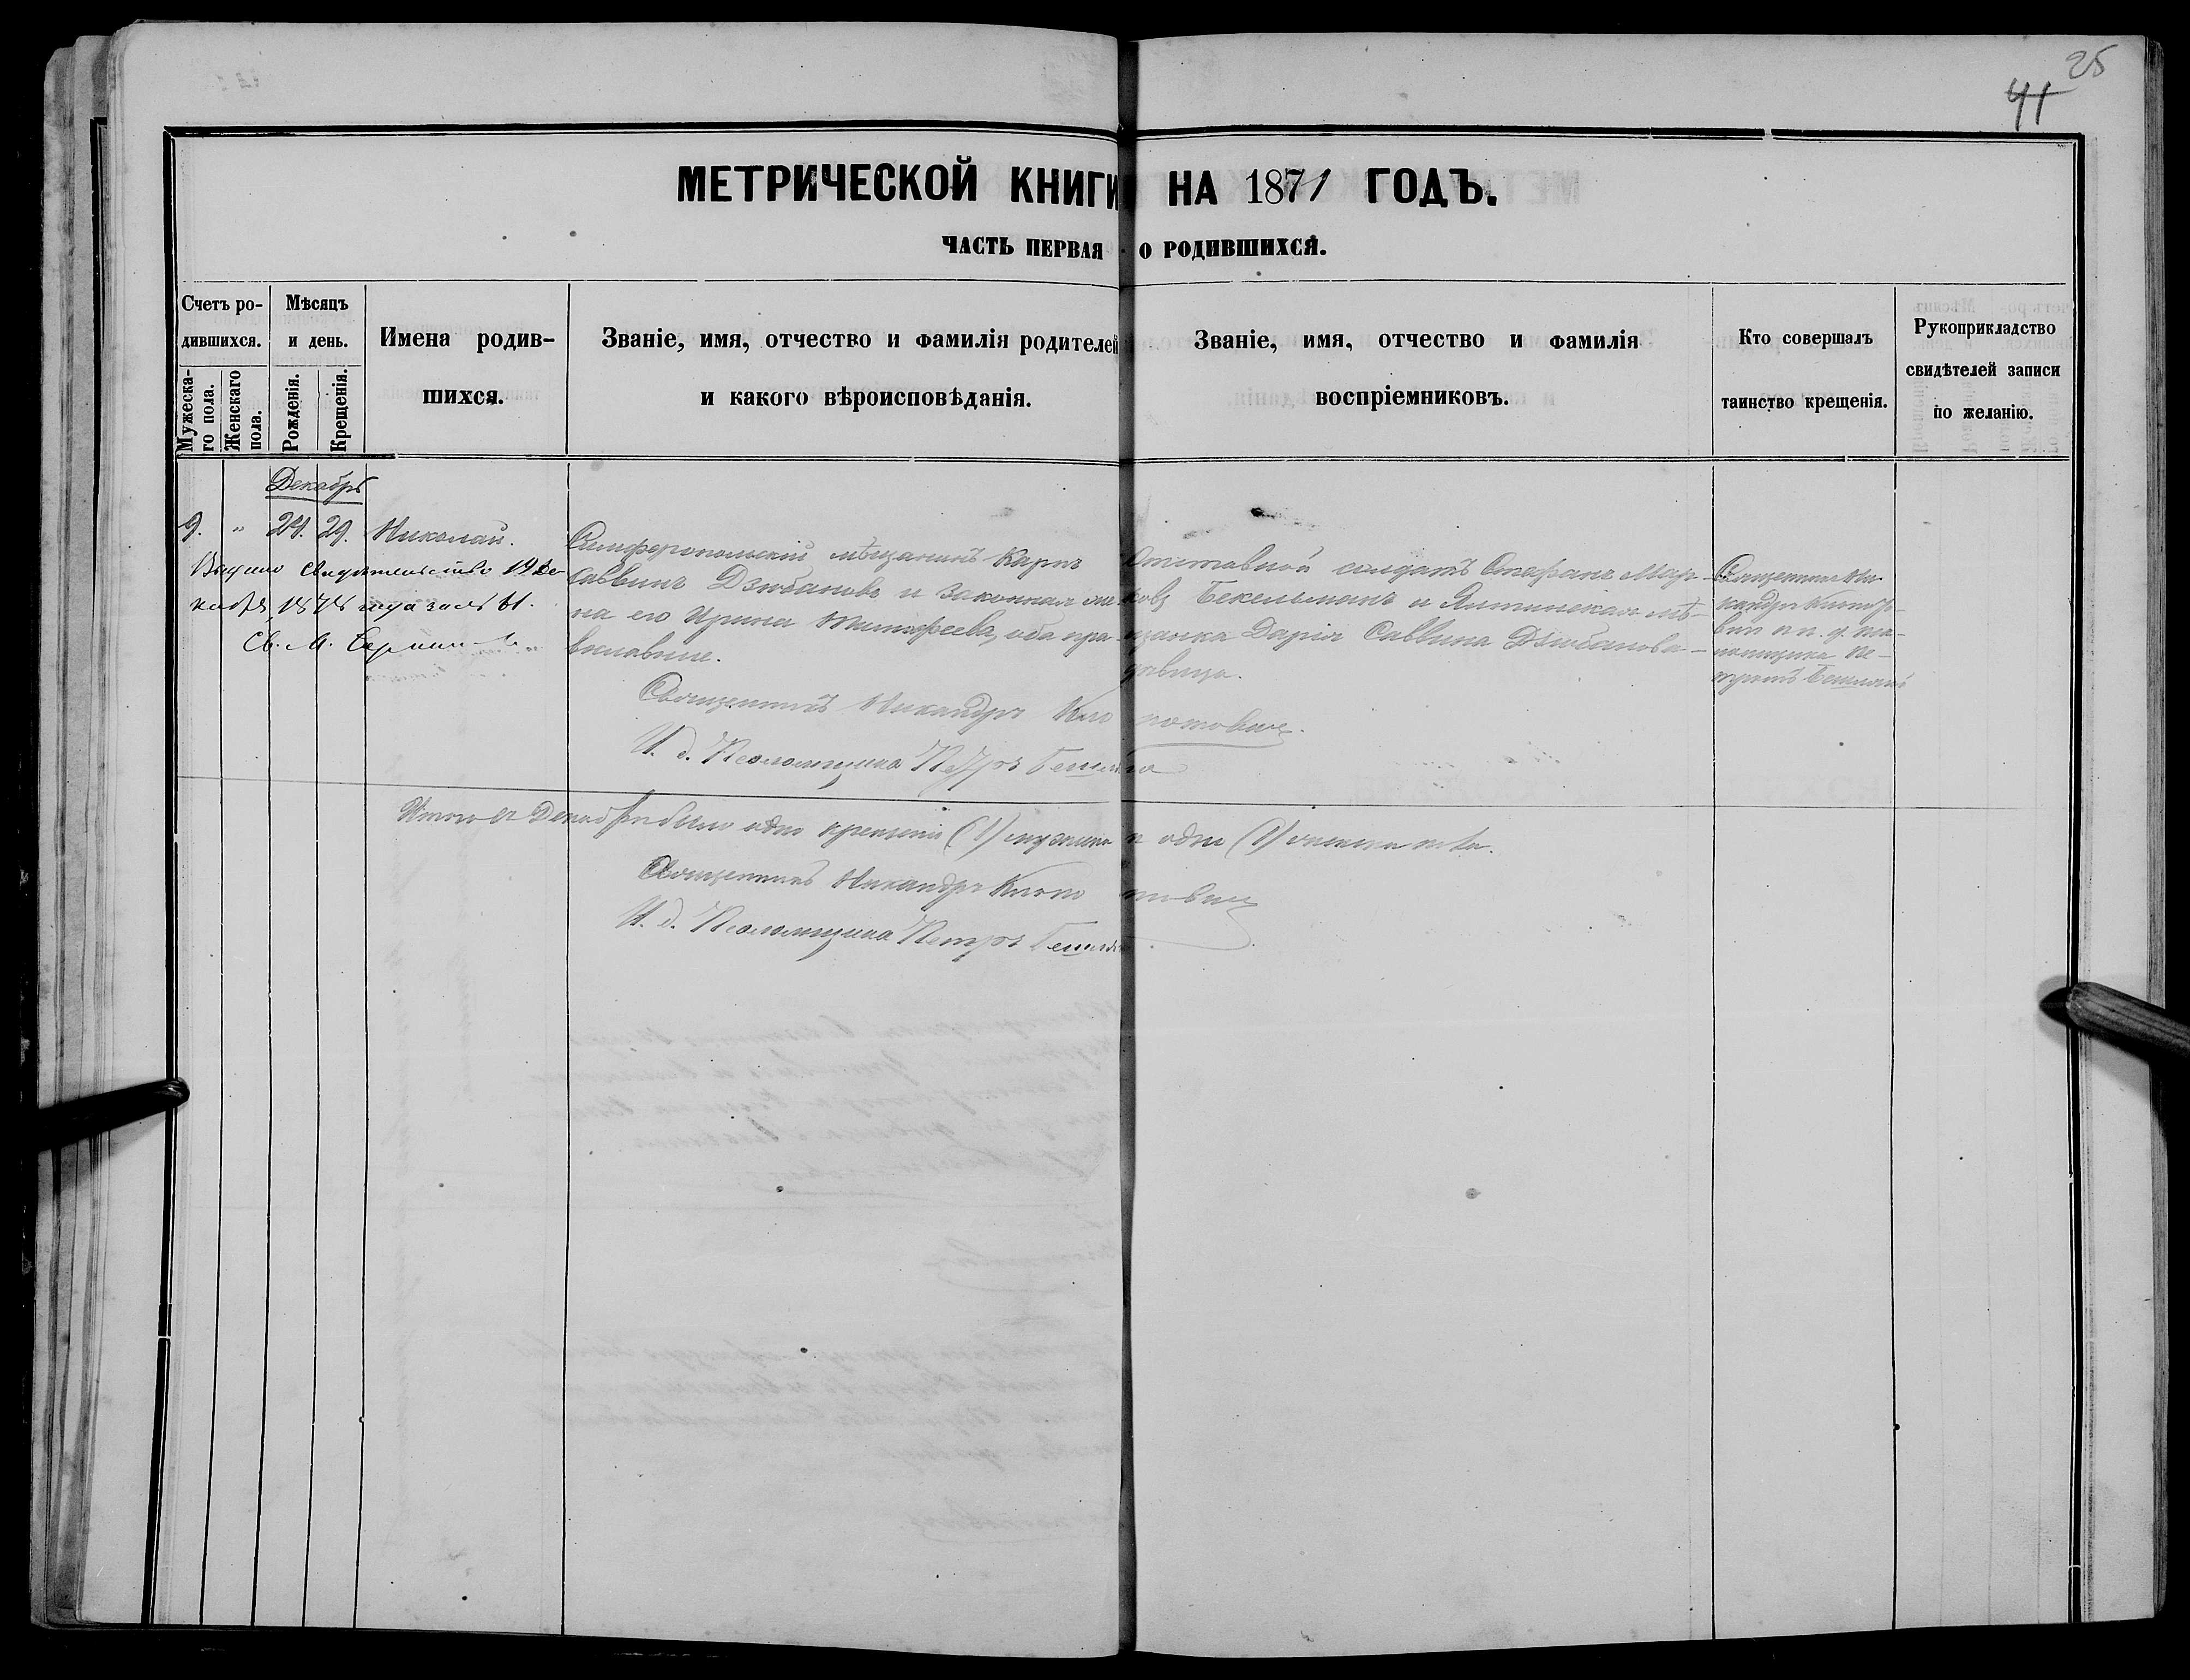 25
41
МЕТРИЧЕСКОЙ КНИГИ НА 1871 ГОДЪ.
ЧАСТЬ ПЕРВАЯ О РОДИВШИХСЯ.
Счетъ ро-
дившихся.
Мужеска-
го пола.
Женскаго
пола.
Мѣсяцъ
и день.
Рожденія.
Крещенія.
Имена родив-
шихся.
Званіе, имя, отчество и фамилія родителей
и какого вѣроисповѣданія.
Званіе, имя, отчество и фамилія
воспріемниковъ.
Кто совершалъ
таинство крещенія.
Рукоприкладство
свидѣтелей записи
по желанію.
Декабрь
9. " 24. 29. Николай.
Выдано свидѣтельство 19 Де-
кабря 187 года за № 61.
Св. М.
Симферопольскій мѣщанинъ Карпъ
Саввинъ Дзюбановъ и законная же-
на его Ирина Тимофеева, оба пра-
вославные.
Отставной солдатъ Стефанъ Мар-
ковъ Бекельманъ и Ялтинская мѣ-
щанка Дарія Саввина Дзюбанова –
дѣвица.
Священникъ Ни-
кандръ
и и. д. пса-
ломщика Пе-
тръ
Священникъ Никандръ
И. д. Псаломщика Петръ
Итого въ Декабрѣ было одно крещеніе (1) мужеска и одно (1) женска пола.
Священникъ Никандръ
И. д. Псаломщика Петръ